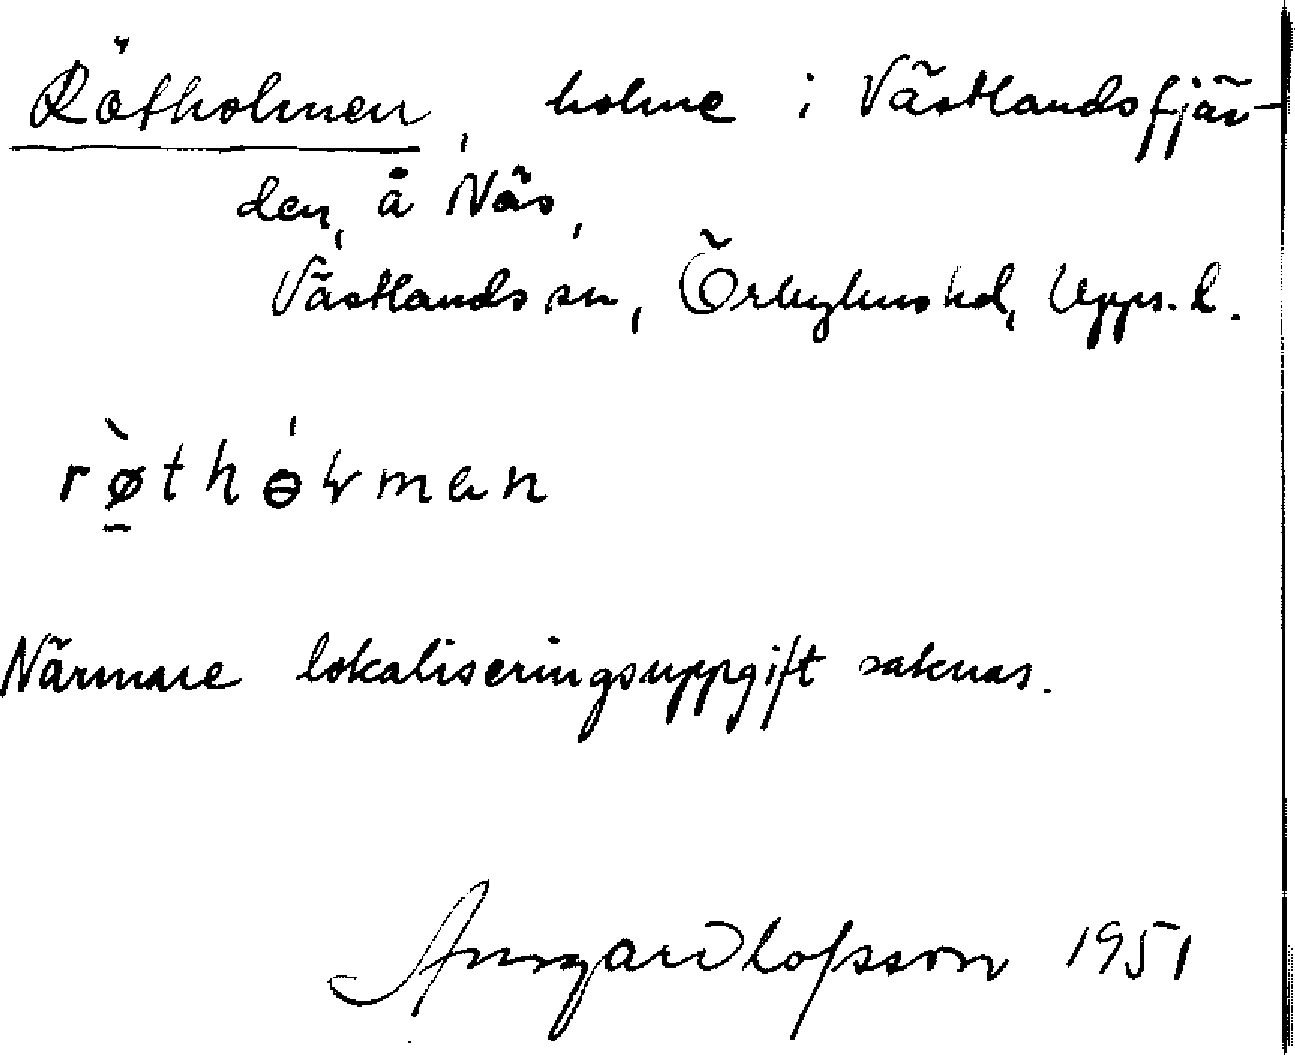 Rötholmen, holme i Västlandsfjär-
den, å Näs,
Västlands sn, Örbyhus hd, Upps. l.
rø̠̀thɵ́ɽmɑn
Närmare lokaliseringsuppgift saknas.
Ansgar Olofsson 1951